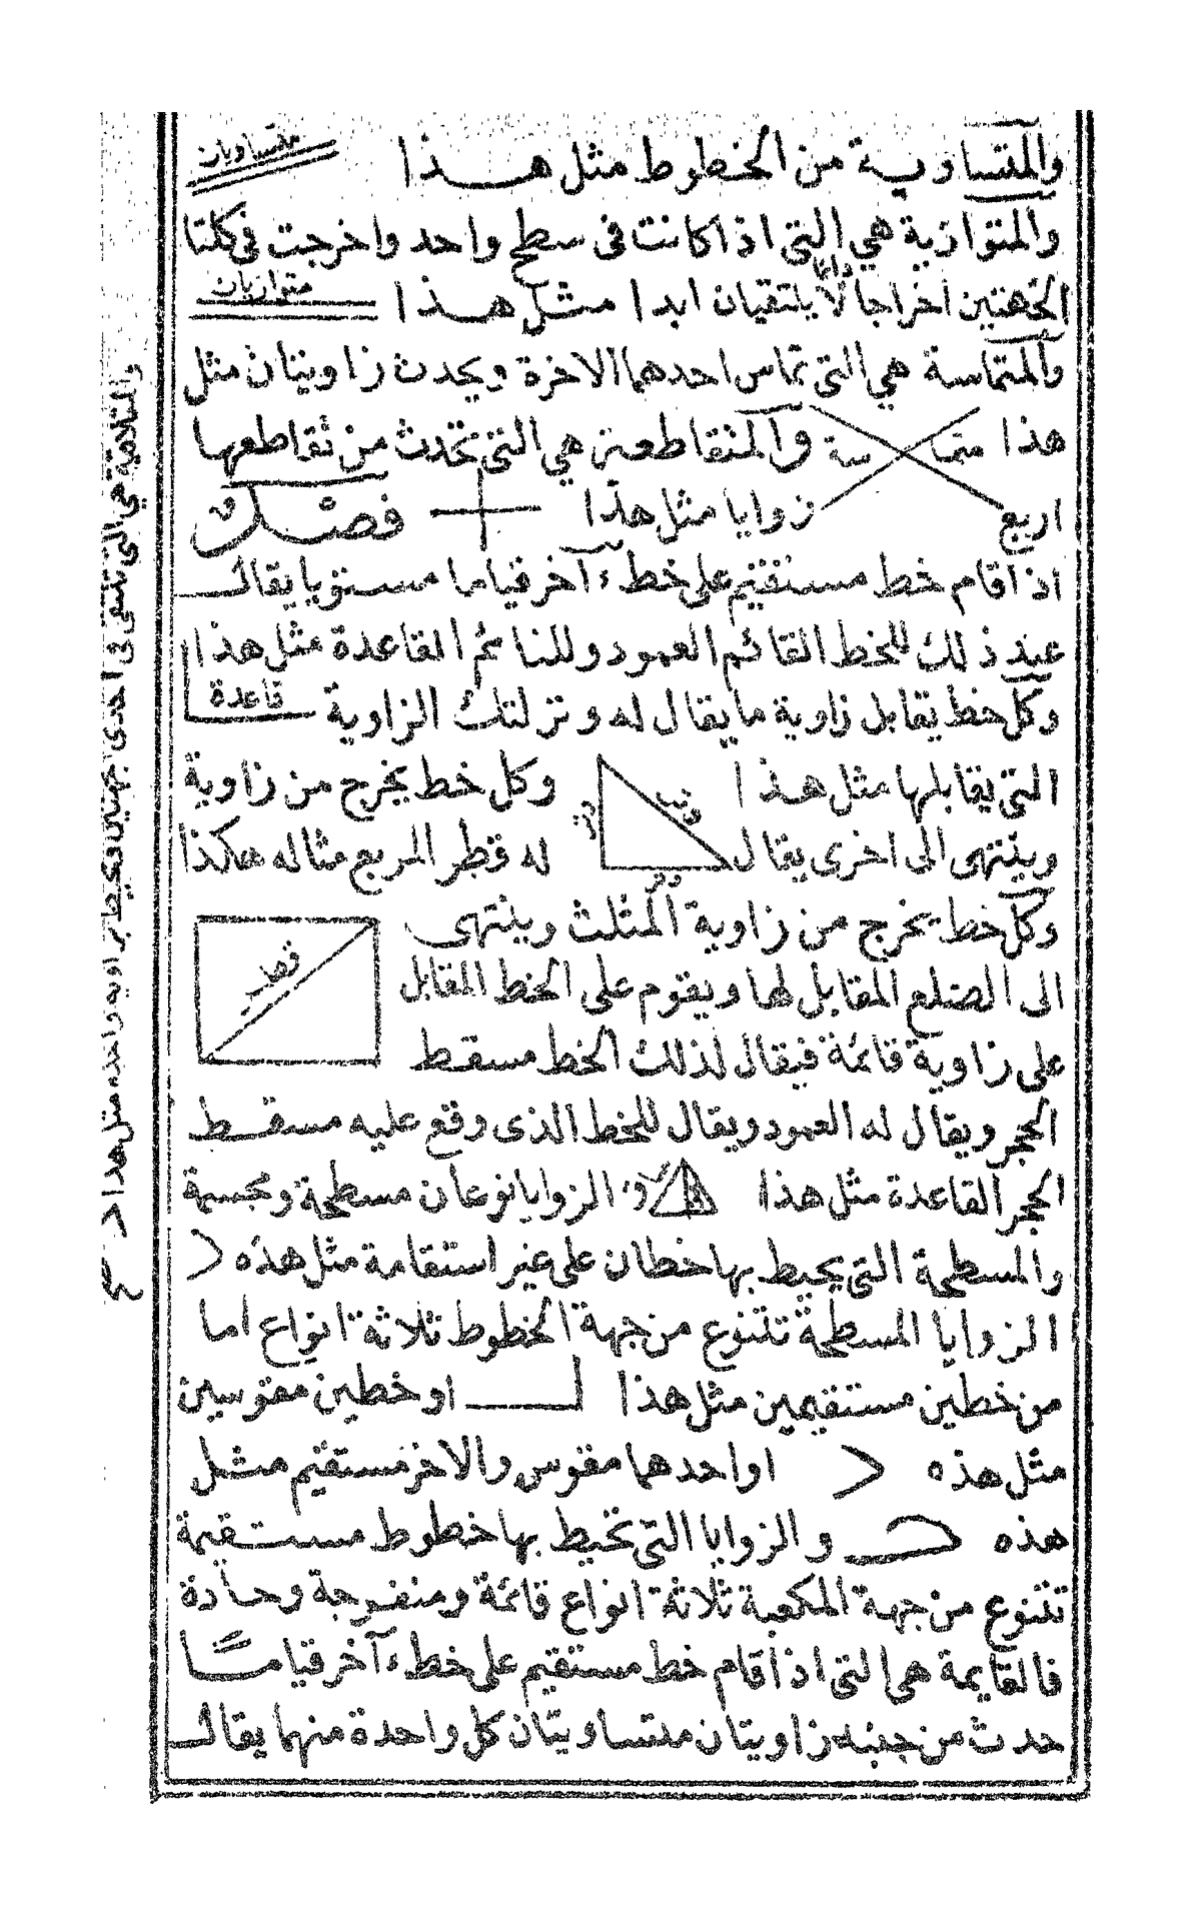 والمتساوية من الخطوط مثل هذا متساويان
والمتوازية هي التي اذا كانت فى سطح واحد واخرجت في كلتا
الجهتين اخراجا دائما لا يلتقيان ابدا مثل هذا متوازيان
والمتماسة هي التي تماس احدهما الاخرة ويحدث زاويتان مثل
هذا متماسة والمتقاطعة هي التي تحدث من تقاطعها
اربع زوايا مثل هذا فصل
اذا قام خط مستقيم على خط آخر قياما مستويا يقال
عند ذلك للخط القائم العمود وللنائم القاعدة مثل هذا
قاعدة
وكل خط يقابل زاوية ما يقال له وتر لتلك الزاوية
التي يقابلها مثل هذا وكل خط يخرج من زاوية
وينتهى الى اخرى يقال له قطر المربع مثاله هكذا
وتر
وكل خط يخرج من زاوية المثلث وينتهى
قطر
الى الضلع المقابل لها ويقوم على الخط المقابل
على زاوية قائمة فيقال لذلك الخط مسقط
الحجر ويقال له العمود ويقال للخط الذى وقع عليه مسقط
الحجر القاعدة مثل هذا الزوايا نوعان مسطحة ومجسمة
والمسطحة التى يحيط بها خطان على غير استقامة مثل هذه
الزوايا المسطحة تتنوع من جهة الخطوط ثلاثة انواع اما
من خطين مستقيمين مثل هذا او خطين مقوسين
مثل هذه او احدهما مقوس والاخر مستقيم مثل
هذه والزوايا التى تحيط بها خطوط مستقيمة
تتنوع من جهة المكعبة ثلاثة انواع قائمة ومنفرجة وحادة
فالقايمة هى التى اذا قام خط مستقيم على خط آخر قياما
حدث من جنبه زاويتان متساويتان كل واحدة منهما يقال
والمتلاقية هي التى تلتقى فى احدى جهتين ويحيط بزاوية واحدة مثل هذا